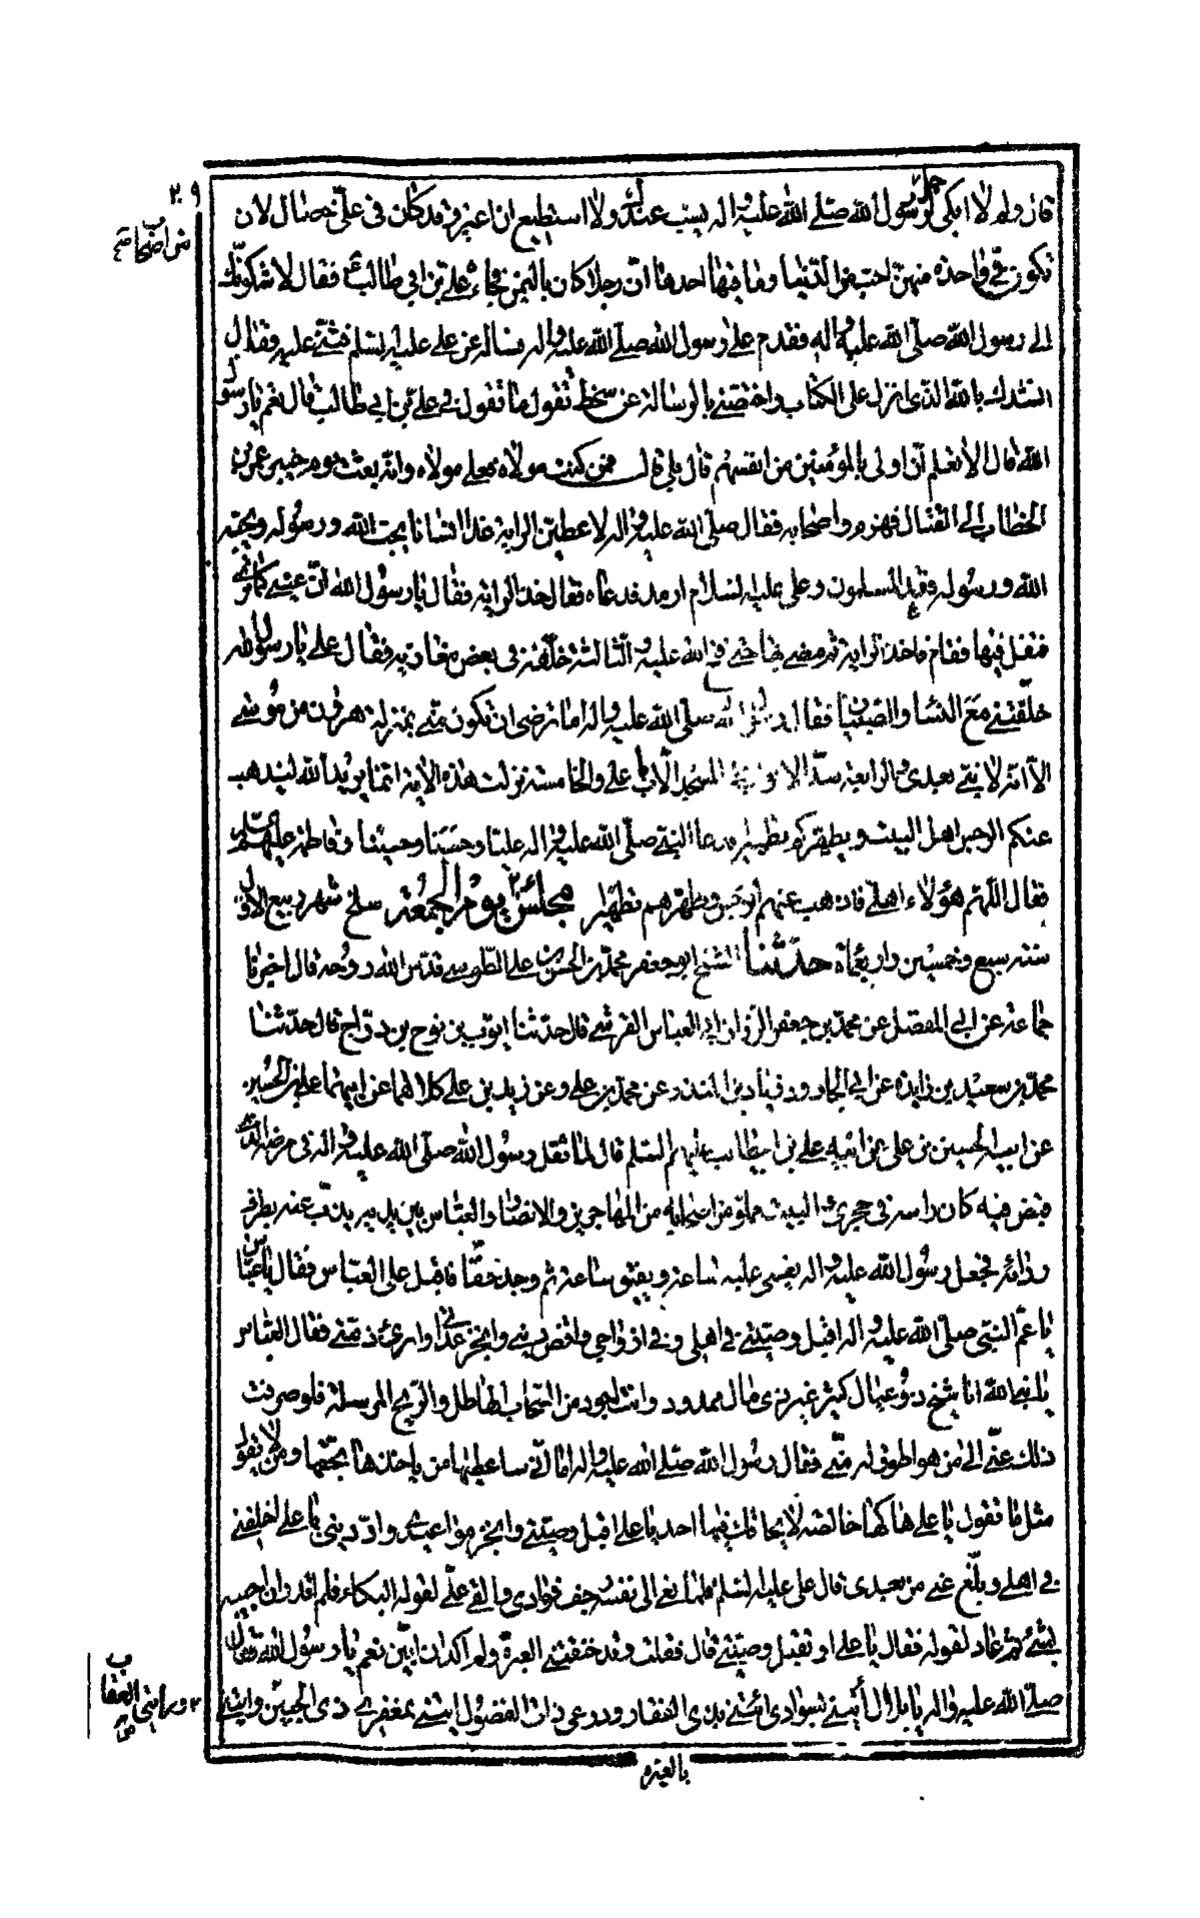 ٢٠٩
من اصحابه
قال ولم لا ابكى لرجل ورسول الله صلى الله عليه واله يسب عندك ولا استطيع ان اغير وقد كان فى على خصال لان
تكون فى واحدة منهن احب من الدنيا وما فيها احدها ان رجلا كان باليمن فجاءه على بن ابى طالب ع فقال لاشكونك
الى رسول الله صلى الله عليه واله فقدم على رسول الله صلى الله عليه واله فساله عن على عليه السلم فشنى عليه فقال
انشدك بالله الذى انزل على الكتاب واختصنى بالرسالة عن سخط تقول ما تقول فى على بن ابى طالب قال نعم يا رسول
الله قال الا تعلم ان اولى بالمؤمنين من انفسهم قال بلى قال فمن كنت مولاه فعلى مولاه وانه بعث يوم خيبر عمر بن
الخطاب الى القتال فهزم واصحابه فقال صلى الله عليه واله لاعطين الراية غدا انسانا يحب الله ورسوله ويحبه
الله ورسوله المسلمون وعلى عليه السلام ارمد فدعاه فقال خذ الراية فقال يا رسول الله ان عينى كما ترى
فتفل فيها فقام فاخذ الراية ثم مضى بها حتى فتح الله عليه والثالثة خلفه فى بعض مغازيه فقال على يا رسول الله
خلفتنى مع النساء والصبيان فقال رسول الله صلى الله عليه واله اما ترضى ان تكون منى بمنزلة هرون من موسى
الا انه لا نبى بعدى والرابعة سد الابواب فى المسجد الا باب على والخامسة نزلت هذه الاية انما يريد الله ليذهب
عنكم الرجس اهل البيت ويطهركم تطهيرا فدعا النبى صلى الله عليه واله عليا وحسنا وحسينا وفاطمة عليهم السلم
فقال اللهم هؤلاء اهلى فاذهب عنهم الرجس وطهرهم تطهيرا مجلس يوم الجمعة سلخ شهر ربيع الاول
سنة سبع وخمسين واربعمائة حدثنا الشيخ ابو جعفر محمد بن الحسن بن على الطوسى قدس الله روحه قال اخبرنا
جماعة عن ابى المفضل عن محمد بن جعفر الرزاز ابو العباس القرشى قال حدثنا ايوب بن نوح بن دراج قال حدثنا
محمد بن سعيد بن زايدة عن ابى الجارود زياد بن المنذر وعن محمد بن على وعن زيد بن على كلاهما عن ابيهما على بن الحسين
عن ابيه الحسين بن على عن ابيه على بن ابيطالب عليهم السلم قال لما ثقل رسول الله صلى الله عليه واله فى مرضه الذى
قبض فيه كان راسه فى حجرى والبيت مملو من اصحابه من المهاجرين والانصار والعباس بين يديه يذب عنه بطرف
ردائه فجعل رسول الله عليه واله يغمى عليه ساعة ويفيق ساعة ثم وجد خفا فاقبل على العباس فقال يا عباس
يا عم النبى صلى الله عليه واله اقبل وصيتى فى اهلى وفى ازواجى واقض دينى وانجز عداتى وابرئ ذمتى فقال العباس
يا نبى الله انا شيخ ذو عيال كثير غير ذى مال ممدود وانت اجود من السحاب الهاطل والريح المرسلة فلو صرفت
ذلك عنى الى من هو اطوق له منى فقال رسول الله صلى الله عليه واله اما انى ساعطيها من ياخذها بحقها ومن لا يقول
مثل ما تقول يا على هاكها خالصة لا يحاقك فيها احد يا على اقبل وصيتى وانجز مواعيدى واد دينى يا على اخلفنى
فى اهلى وبلغ عنى من بعدى قال على عليه السلم فلما نعى الى نفسه رجف فؤادى والقى على لقوله البكاء فلم اقدر ان اجيبه
بشئ ثم عاد لقوله فقال يا على او تقبل وصيتى قال فقلت وقد خنقتنى العبرة ولم اكد ان ابين نعم يا رسول الله فقال
صلى الله عليه واله يا بلال ائتنى بسوادى ائتنى بذى الفقار ودرعى ذات الفضول ائتنى بمغفرى ذى الجبين وايتنى
ورايتى العقاب
بالعنزة